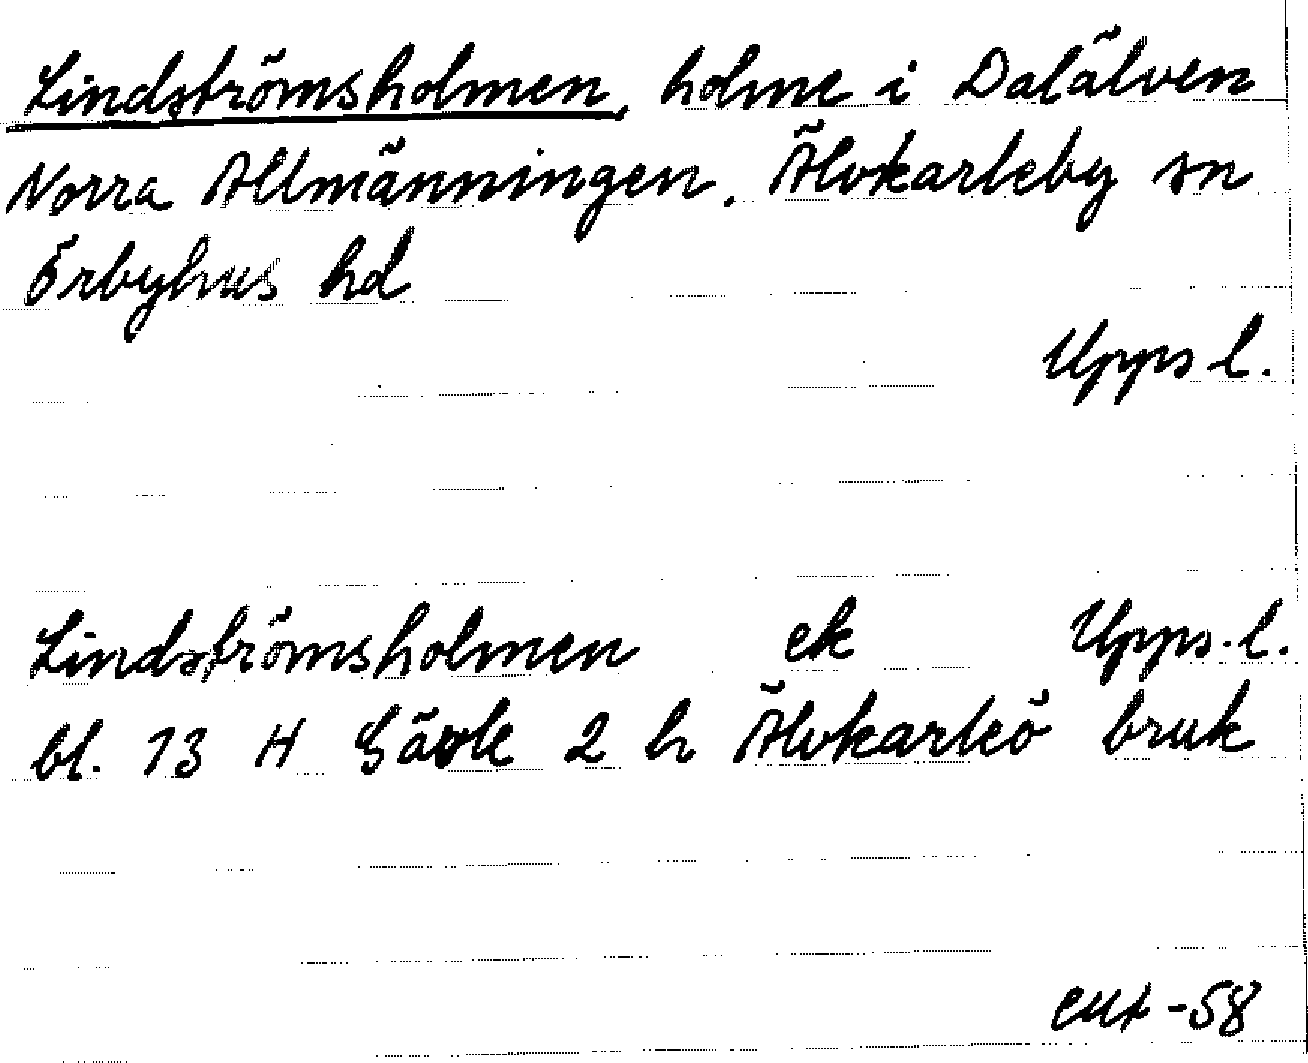 Lindströmsholmen, holme i Dalälven
Norra Allmänningen, Älvkarleby sn
Örbyhus hd
Upps l.
Lindströmsholmen ek Upps. l.
bl. 13 H Gävle 2 h Älvkarleö bruk
-58